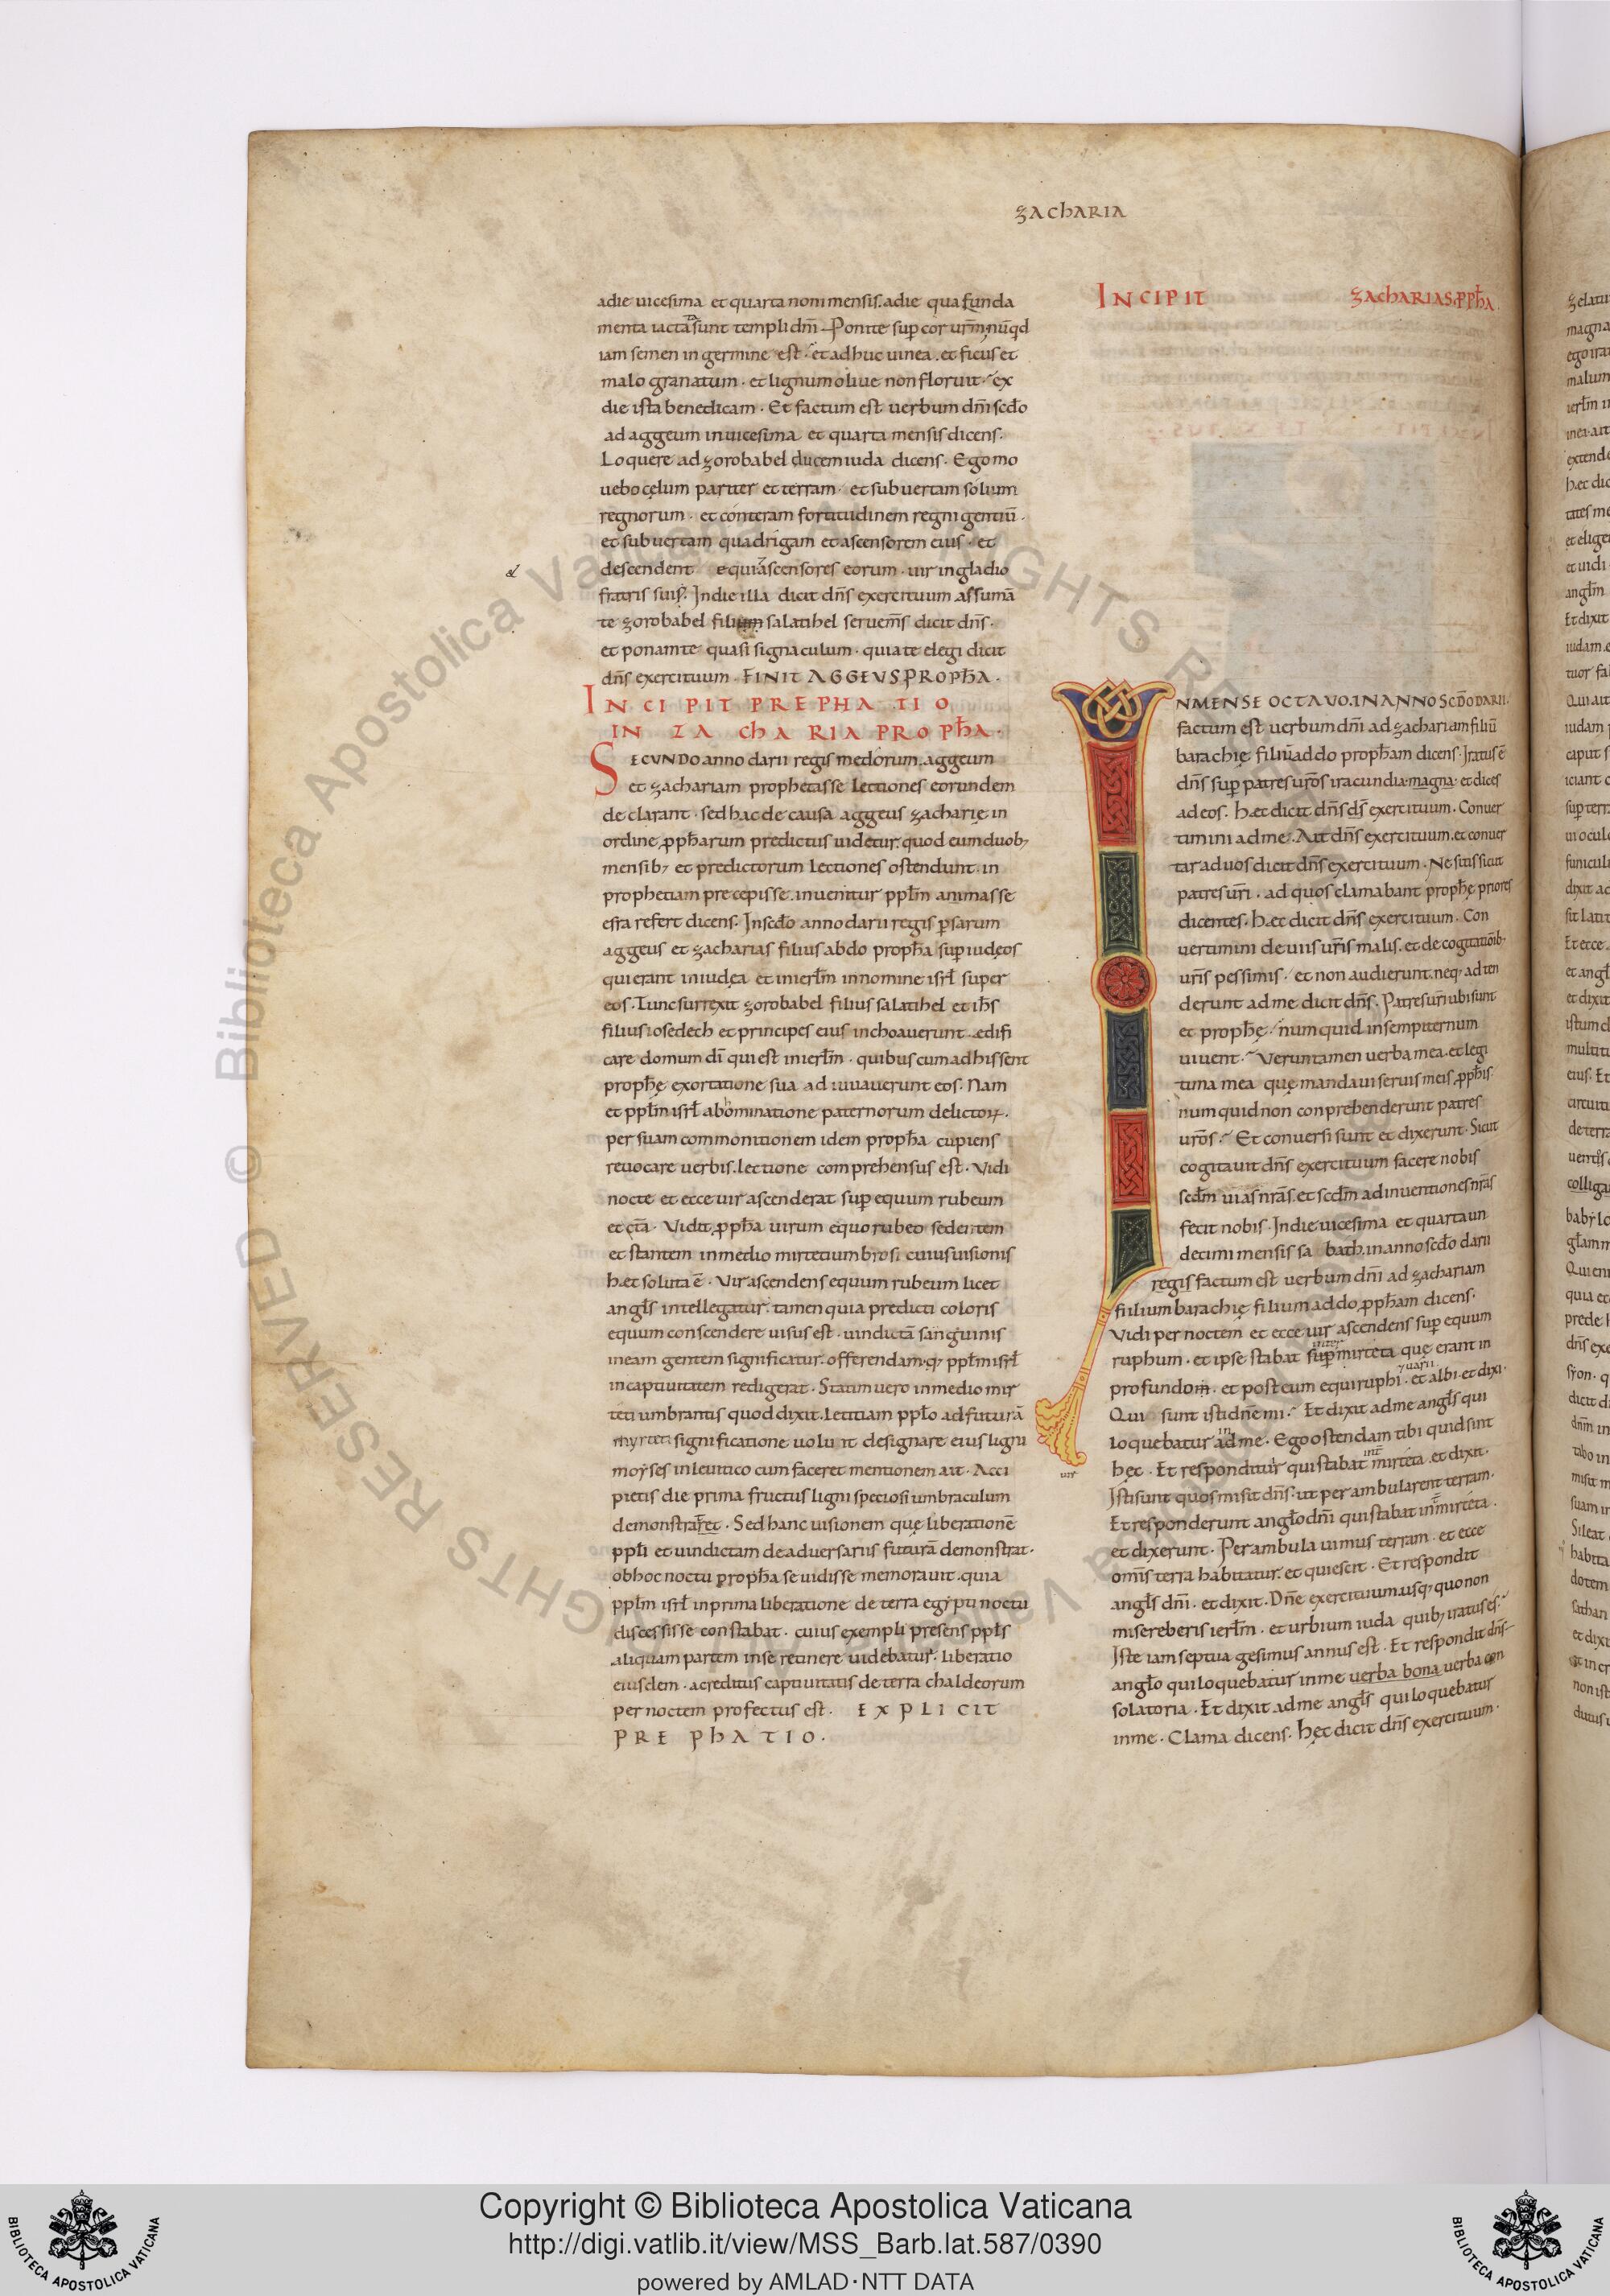 ZACHARIA
adie uicesima et quarta noni mensis. adie qua funda
menta iacta sunt templi dñi. Ponite sup cor urm. nuqd
iam semen in germine est. et adhuc uinea. et ficus et
malo granatum. et lignum oliue non floruit. ex
die ista benedicam. Et factum est uerbum dñi scdo
ad aggeum in uicesima et quarta mensis dicens.
Loquere ad zorobabel ducem iuda dicens. Ego mo
uebo cęlum pariter et terram. et subuertam solium
regnorum. et conteram fortitudinem regni gentiū.
et subuertam quadrigam et ascensorem eius. et
descendent equi & ascensores eorum. uir in gladio
fratris sui. In die illa dicit dñs exercituum assumā
te zorobabel filium salatihel serue ms dicit dñs.
et ponam te quasi signaculum. quia te elegi dicit
dñs exercituum. FINIT AGGEUS PROPHA.
INCIPIT PREPHATIO
IN ZACHARIA PROPHA.
SECUNDO anno darii regis medorum. aggeum
et zachariam prophetasse lectiones eorundem
declarant. sed hac de causa aggeus zacharię in
ordine ppharum predictus uidetur. quod eum duob;
mensib; et predictorum lectiones ostendunt. in
prophetiam precepisse. inuenitur pplm animasse
esra refert dicens. In scdo anno darii regis psarum
aggeus et zacharias filius abdo propha sup iudeos
qui erant in iudęa et in ierlm in nomine isrl super
eos. Tunc surrexit zorobabel filius salatihel et ihs
filius iosedech et principes eius inchoauerunt edifi
care domum di qui est in ierlm. quibus cum adhissent
prophę exortatione sua adiuuauerunt eos. Nam
et pplm isrl abominatione paternorum delictorum.
per suam commonitionem idem propha cupiens
reuocare uerbis. lectione comprehensus est. Vidi
nocte et ecce uir ascenderat sup equum rubeum
et cta. Vidit ppha uirum equo rubeo sedentem
et stantem in medio mirtetium brosi cuius uisionis
hęc soluta ē. Vir ascendens equum rubeum licet
angls intellegatur. tamen quia predicti coloris
equum conscendere uisus est. uindictā sanguinis
in eam gentem significatur. offerendam. q; pplm isrl
in captiuitatem redigerat. Statim uero in medio mir
teti umbrantis quod dixit. letitiam pplo ad futurā
myrteti significatione uoluit designare eius ligni
moyses in leuitico cum faceret mentionem ait. Acci
pietis die prima fructus ligni speciosi umbraculum
demonstraret. Sed hanc uisionem quę liberationē
ppli et uindictam de aduersariis futurā demonstrat.
ob hoc noctu propha se uidisse memorauit. quia
pplm isrl in prima liberatione de terra egypti noctu
discessisse constabat. cuius exempli presens ppls
aliquam partem in se retinere uidebatur. liberatio
eiusdem. acreditus captiuitatis de terra chaldeorum
per noctem profectus est. EXPLICIT
PREPHATIO.
INCIPIT ZACHARIAS PPHA
IN MENSE OCTAVO. IN ANNO SCDO DARII.
factum est uerbum dñi ad zachariam filiū
barachię filiū addo propham dicens. Iratus ē
dñs sup patres uros iracundia magna. et dices
ad eos. Hęc dicit dñs ds exercituum. Conuer
timini ad me. Ait dñs exercituum. et conuer
tar ad uos dicit dñs exercituum. Ne sitis sicut
patres uri. ad quos clamabant prophę priores
dicentes. Hęc dicit dñs exercituum. Con
uertimini de uiis uris malis. et de cogitationib.
uris pessimis. et non audierunt. neq; adten
derunt ad me dicit dñs. Patres uri ubi sunt
et prophę. numquid in sempiternum
uiuent. Veruntamen uerba mea. et legi
tima mea quę mandaui seruis meis pphis
numquid non conprehenderunt patres
uros. Et conuersi sunt et dixerunt. Sicut
cogitauit dñs exercituum facere nobis
scdm uias nras. et scdm adinuentiones nras
fecit nobis. In die uicesima et quarta un
decimi mensis sabath. in anno scdo darii
regis factum est uerbum dñi ad zachariam
filium barachię filium addo ppham dicens.
Vidi per noctem et ecce uir ascendens sup equum
ruphum. et ipse stabat sup inter mirteta quę erant in
profundom. et post eum equi ruphi. uarii. et albi. et dixi.
Qui sunt isti dñe mi. Et dixit ad me angls qui
loquebatur ad in me. Ego ostendam tibi quid sint
hęc. Et respondit uir qui stabat int mirteta. et dixit.
uir
Isti sunt quos misit dñs. ut perambularent terram.
Et responderunt anglo dñi qui stabat int mirteta.
et dixerunt. Perambulauimus terram. et ecce
omis terra habitatur. et quiescit. Et respondit
angls dñi. et dixit. Dñe exercituum. usq; quo non
misereberis ierlm. et urbium iuda quib; iratus es.
Iste iam septuagesimus annus est. Et respondit dñs
anglo qui loquebatur in me uerba bona uerba con
solatoria. Et dixit ad me angls qui loquebatur
in me. Clama dicens. Hęc dicit dñs exercituum.
© Biblioteca Apostolica Vaticana ALL RIGHTS RESERVED
Copyright © Biblioteca Apostolica Vaticana
http://digi.vatlib.it/view/MSS_Barb.lat.587/0390
powered by AMLAD·NTT DATA
BIBLIOTECA APOSTOLICA VATICANA
BIBLIOTECA APOSTOLICA VATICANA